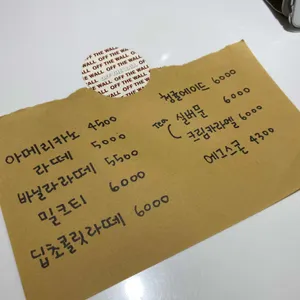 OFF THE WALL
아메리카노 4500
라떼 5000
바닐라라떼 5500
밀크티 6000
딥초콜릿라떼 6000
청포도에이드 6000
Tea ( 실버문 6000
크림카라멜 6000
에그스콘 4300